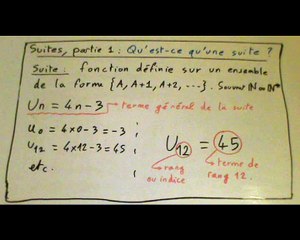 Suites, partie 1 : Qu'est-ce qu'une suite ?
Suite : fonction définie sur un ensemble
de la forme {A, A+1, A+2, ...}. Souvent ℕ ou ℕ*
Un = 4n-3 → terme général de la suite
u0 = 4×0-3 = -3 ;
u12 = 4×12-3 = 45 ;
etc. ;
U12 = 45
rang
ou indice
terme de
rang 12.